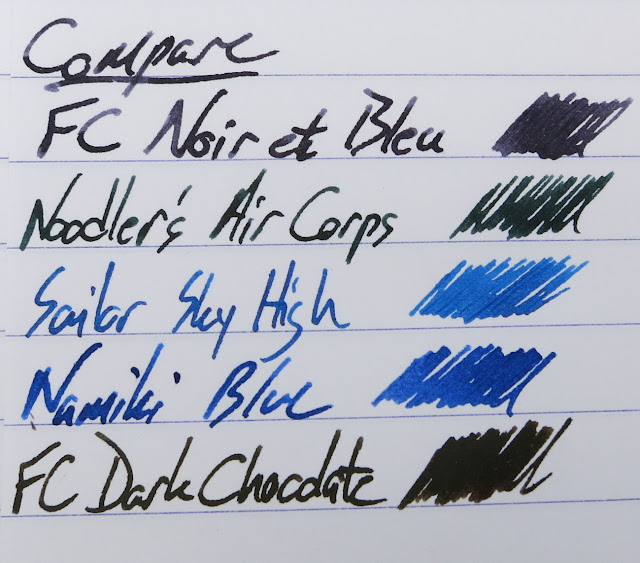 Compare
FC Noir et Bleu
Noodler's Air Corps
Sailor Sky High
Namiki Blue
FC Dark Chocolate